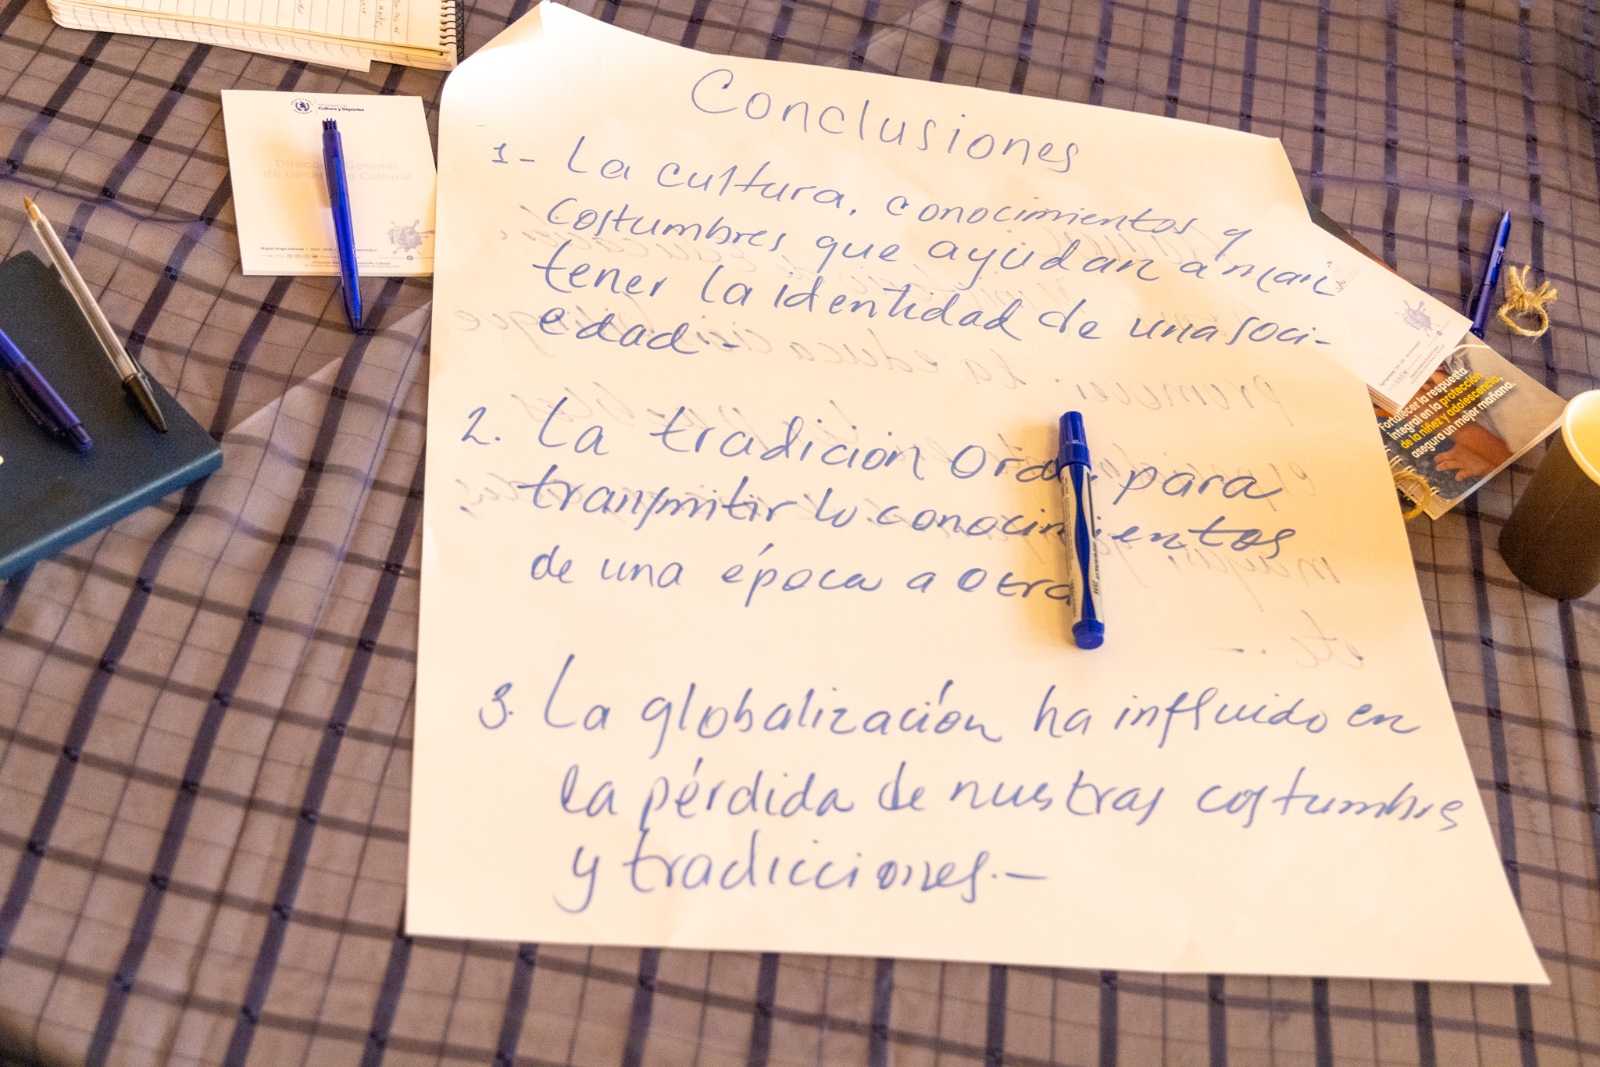 Cultura y Deportes
Dirección General
de Desarrollo Cultural
Conclusiones
1- La cultura, conocimientos y
costumbres que ayudan a man
tener la identidad de una soci-
edad.-
2. La tradición Oral para
transmitir lo conocimientos
de una época a otra
3. La globalización ha influido en
la pérdida de nuestras costumbres
y tradicciones.-
Fortalecer la respuesta
integral en la protección
de la niñez y adolescencia,
asegura un mejor mañana.